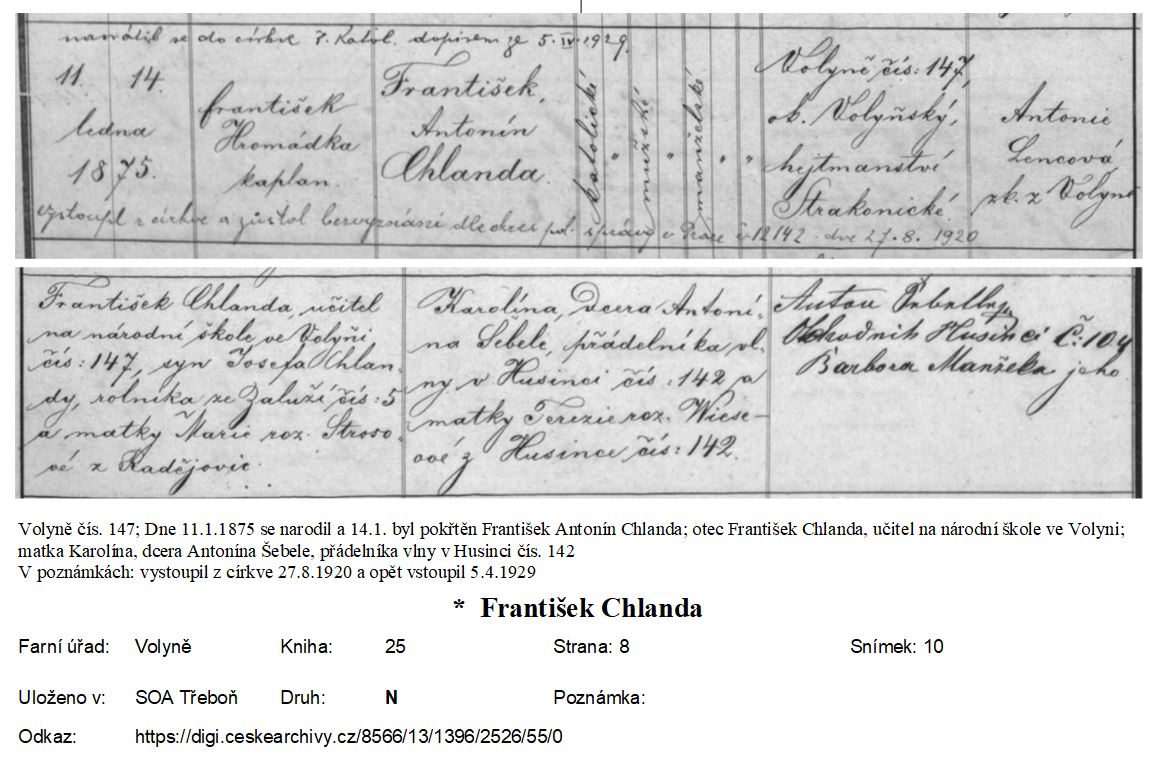 navrátil se do církve ř. katol. dopisem ze 5. IV. 1929.
11. 14.
ledna
1875.
František
Hromádka
kaplan.
František,
Antonín
Chlanda.
katolické
"
mužské
"
manželské
" "
Volyně čís: 147,
ok. Volyňský,
hejtmanství
Strakonické.
Antonie
Lencová
zk. z Volyně
Vystoupil z církve a zůstal bezvyznání dle pol. správy v Praze č. 12142 dne 27. 8. 1920
František Chlanda, učitel
na národní škole ve Volyni
čís: 147, syn Josefa Chlan-
dy, rolníka ze Zaluží čís: 5
a matky Marie roz. Stroso-
vé z Radějovic.
Karolína, dcera Antoní-
na Šebele, přádelníka vl-
ny v Husinci čís: 142 a
matky Terezie roz. Wiese-
ové z Husince čís: 142.
Husinci Č: 104
Barbora Manželka jeho
Volyně čís. 147; Dne 11.1.1875 se narodil a 14.1. byl pokřtěn František Antonín Chlanda; otec František Chlanda, učitel na národní škole ve Volyni;
matka Karolína, dcera Antonína Šebele, přádelníka vlny v Husinci čís. 142
V poznámkách: vystoupil z církve 27.8.1920 a opět vstoupil 5.4.1929
* František Chlanda
Farní úřad: Volyně Kniha: 25 Strana: 8 Snímek: 10
Uloženo v: SOA Třeboň Druh: N Poznámka:
Odkaz: https://digi.ceskearchivy.cz/8566/13/1396/2526/55/0